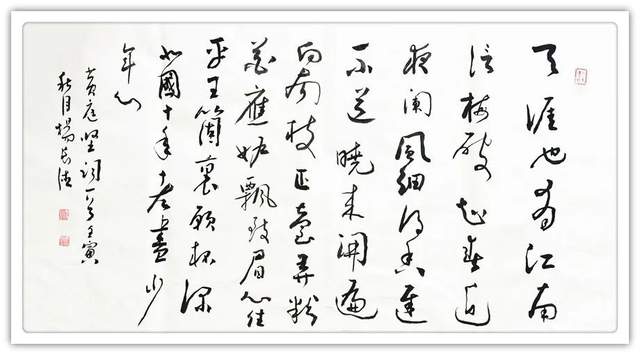 天涯也有江南
信梅破知春近
夜阑風細得香遲
不道曉来開遍
向南枝玉臺弄粉
花應妒飄到眉心住
平生箇裏願杯深
去國十年老盡少
年心
黄庭坚词一首壬寅
秋月楊